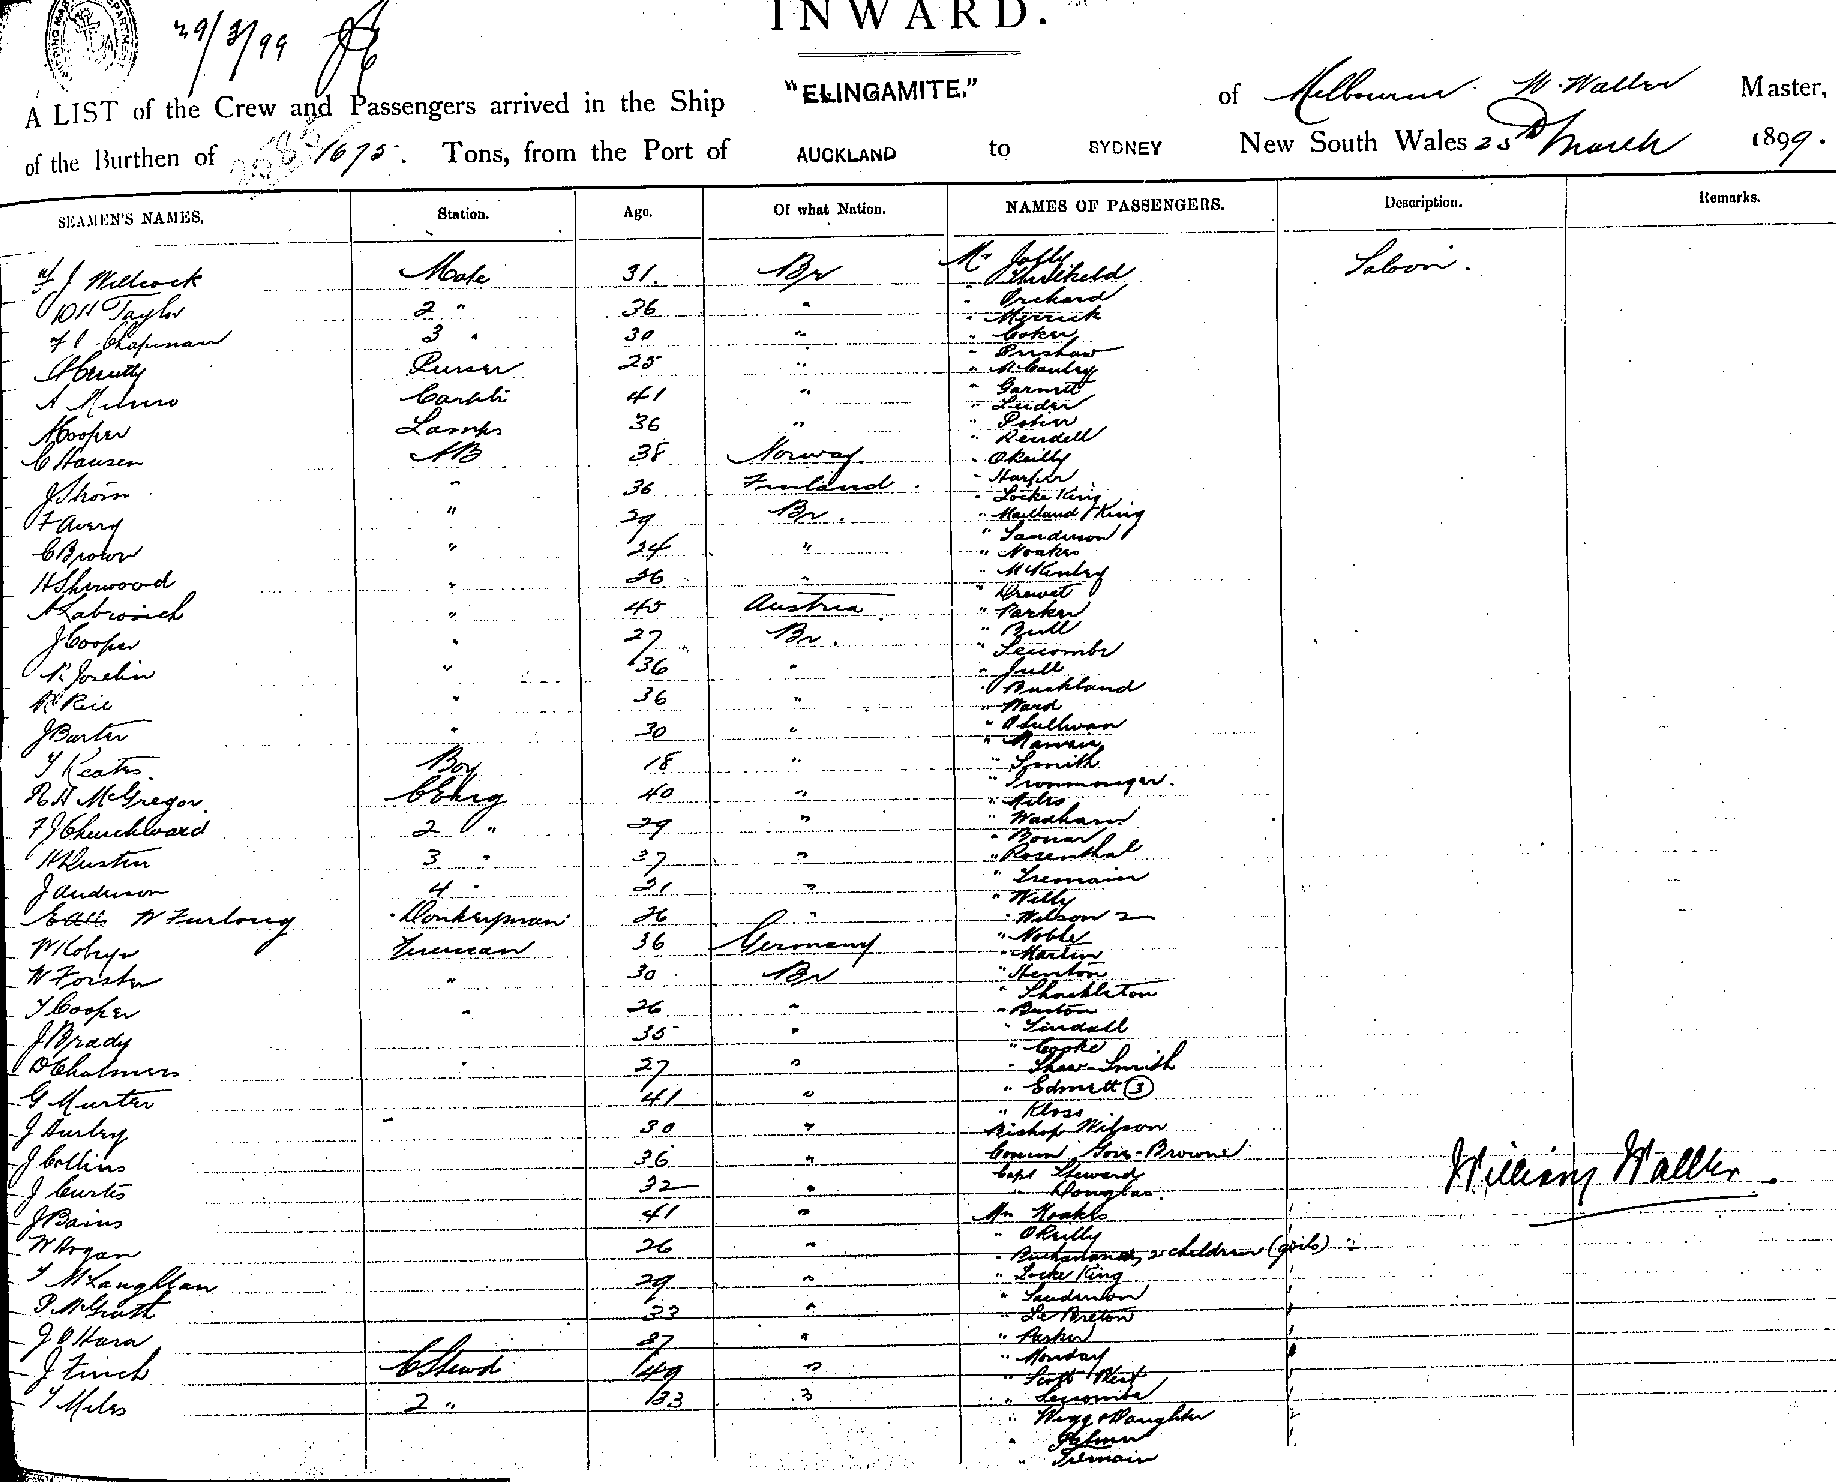 INWARD.
29/3/99
A LIST of the Crew and Passengers arrived in the Ship "ELINGAMITE." of Melbourne. W. Waller Master,
of the Burthen of 1675. Tons, from the Port of AUCKLAND to SYDNEY New South Wales 25th March 1899.
SEAMEN'S NAMES. Station. Age. Of what Nation. NAMES OF PASSENGERS. Description. Remarks.
J Willcock Mate 31. Br
D H Taylor 2 " 36 "
Chapman 3 " 30 "
Purser 25 "
A Munro 41 "
A Cooper Lamps 36 "
C Hansen AB 38 Norway
J Strom " 36 Finland.
F Avery " 29 Br.
C Brown " 24 "
H Sherwood " 26 "
" 45 Austria
J Cooper " 27 Br.
Joselin " 36 "
Rice " 36 "
J Barter " 30 "
T Keates. Boy 18 "
R H McGregor. C Eng 40 "
F J Churchward 2 " 29 "
H Dustin 3 " 37 "
J Anderson 4 " 21 "
W Furlong Donkeyman 26 "
Fireman 36 Germany
W Forster " 30 Br
T Cooper " 26 "
J Brady 35 "
D Chalmers " 27 "
G Murter 41 "
J Hurley 30 "
J Collins 36 "
J Curtis 32 "
J Bains 41 "
W Hogan 26 "
T McLaughlan 29 "
P McGrath 33 "
J O'Hara 27 "
J Finch C Stewd 49 "
T Miles 2 " 33 "
Mr Jolly Saloon.
" Threlkeld
" Orchard
" Merrick
" Coker
" Prushaw
" McCauley
" Garnett
" Luder
" Rendell
" O'Reilly
" Harper
" Locke King
" Maitland King
" Sanderson
" Noakes
" McKinley
" Drewet
" Parker
" Bull
" Lecombe
" Jull
" Buckland
" Ward
" O'Sullivan
" Smith
" Ironmonger.
" Miles
" Wadham
" Bonar
" Rosenthal
" Tremain
" Willy
" Wilson 2
" Noble
" Martin
" Henton
" Shackleton
" Burton
" Lindall
" Cooke
" Shaw-Smith
" Edmett (3)
" Kloss
Bishop Wilson
Gore-Browne
Capt Steward
" Douglas.
Mrs Noakes
" O'Reilly
" Buchanan, 2 children (girls) "
" Locke King
" Sanderson
" Le Breton
" Parker
" Monday
" Scott West
" Lecombe
" Wegg & Daughter
" Palmer
" Tremain
William Waller.